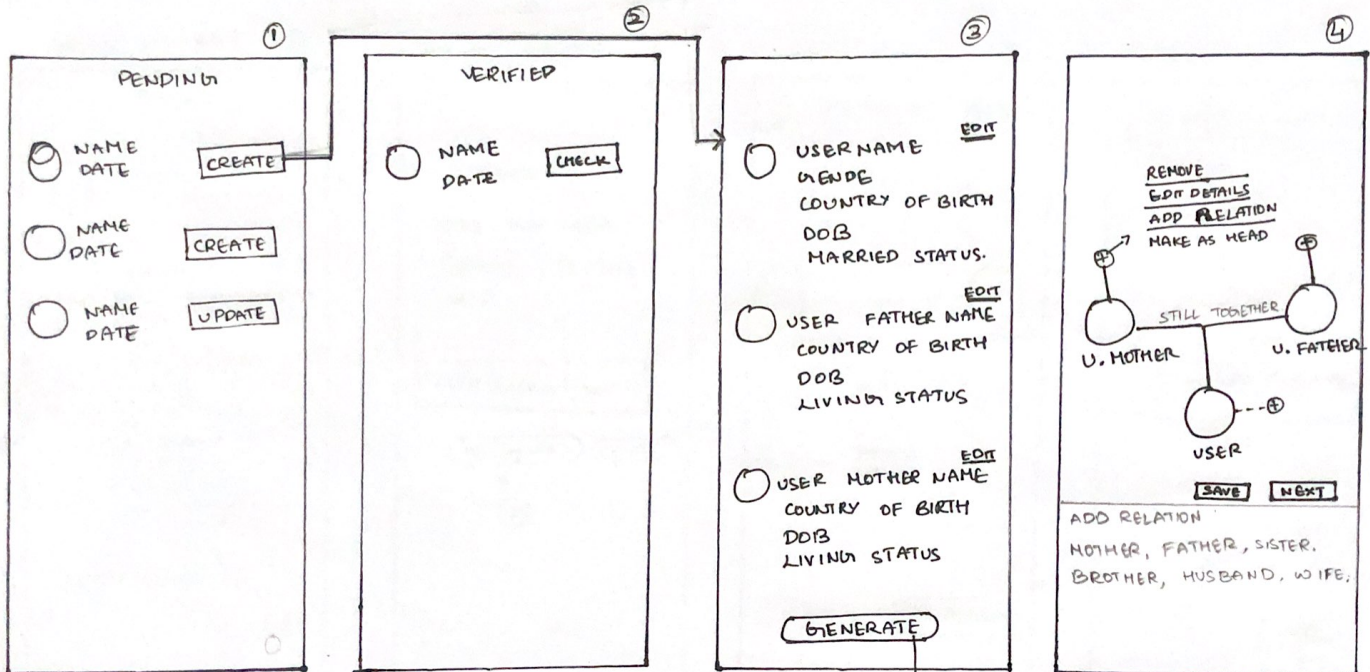 ①
PENDING
NAME
DATE
CREATE
NAME
DATE
CREATE
NAME
DATE
UPDATE
②
VERIFIED
NAME
DATE
CHECK
③
EDIT
USERNAME
GENDE
COUNTRY OF BIRTH
DOB
MARRIED STATUS.
EDIT
USER FATHER NAME
COUNTRY OF BIRTH
DOB
LIVING STATUS
EDIT
USER MOTHER NAME
COUNTRY OF BIRTH
DOB
LIVING STATUS
GENERATE
④
REMOVE
EDIT DETAILS
ADD RELATION
MAKE AS HEAD
STILL TOGETHER
U. MOTHER
U. FATHER
USER
SAVE
NEXT
ADD RELATION
MOTHER, FATHER, SISTER.
BROTHER, HUSBAND, WIFE.